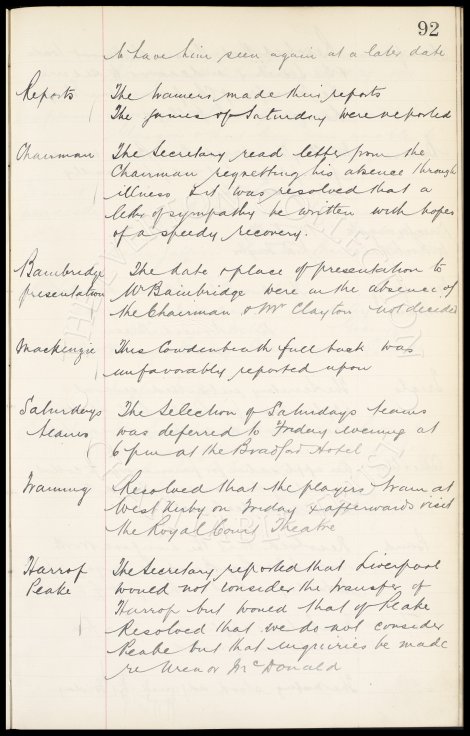 92
to have him seen again at a later date
Reports The trainers made their reports
The games of Saturday were reported
Chairman The Secretary read letter from the
Chairman regretting his absence through
illness & it was resolved that a
letter of sympathy be written with hopes
of a speedy recovery.
Bainbridge The date & place of presentation to
presentation Mr Bainbridge were in the absence of
the Chairman & Mr Clayton not decided
Mackenzie This Cowdenbeath full back was
unfavorably reported upon
Saturdays The Selection of Saturdays teams
teams was deferred to Friday evening at
6 pm at the Bradford Hotel
Training Resolved that the players train at
West Derby on Friday & afterwards visit
the Royal Court Theatre
Harrop The Secretary reported that Liverpool
Peake would not consider the transfer of
Harrop but would that of Peake
Resolved that we do not consider
Peake but that inquiries be made
re Uren or McDonald